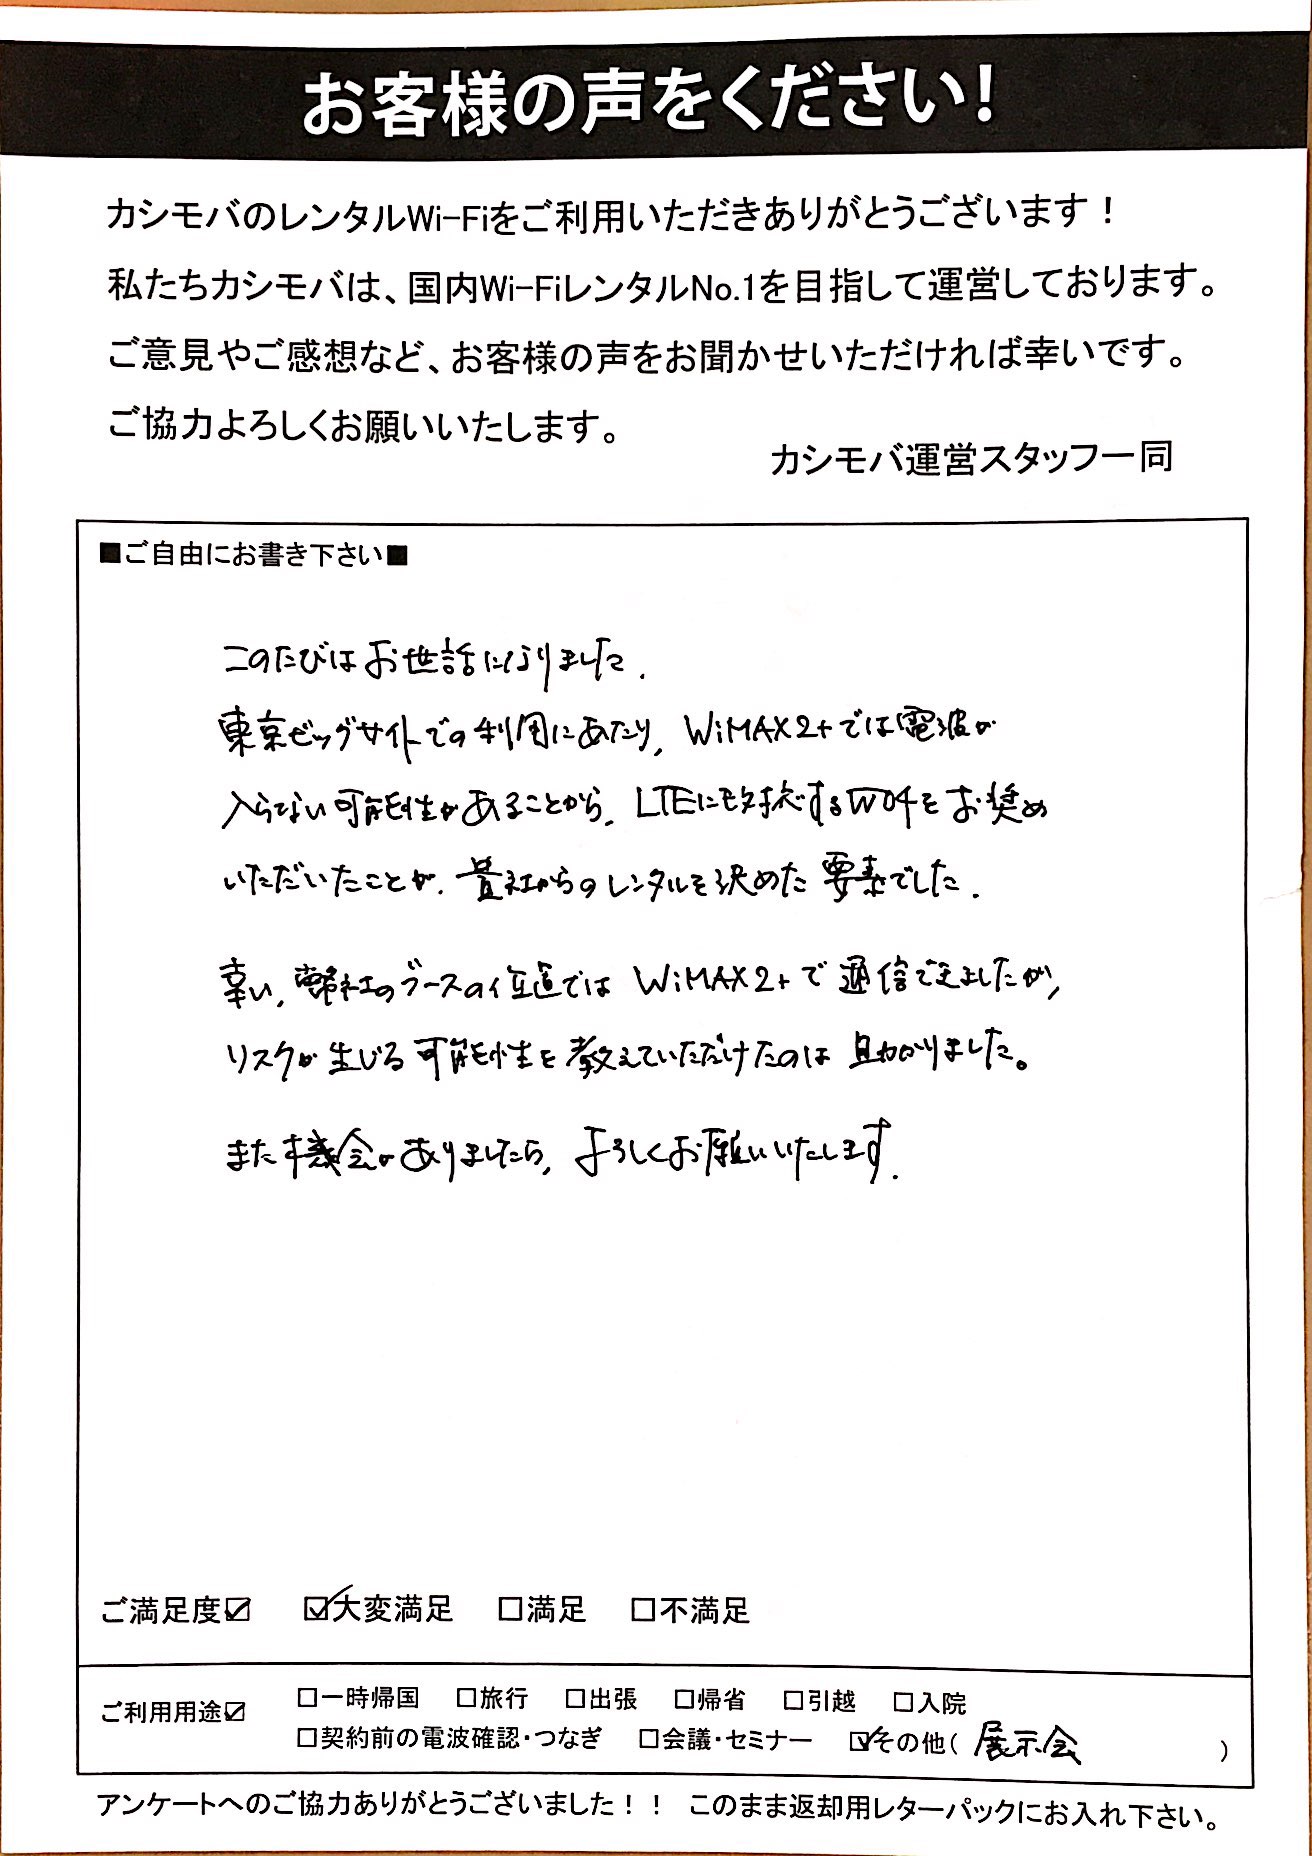 お客様の声をください!
カシモバのレンタルWi-Fiをご利用いただきありがとうございます！
私たちカシモバは、国内Wi-FiレンタルNo.1を目指して運営しております。
ご意見やご感想など、お客様の声をお聞かせいただければ幸いです。
ご協力よろしくお願いいたします。
カシモバ運営スタッフ一同
■ご自由にお書き下さい■
このたびはお世話になりました.
東京ビッグサイトでの利用にあたり, WiMAX2+では電波が
入らない可能性があることから, LTEにも対応するW04をお奨め
いただいたことが, 貴社からのレンタルを決めた要素でした.
幸い, 弊社のブースの位置ではWiMAX2+で通信できましたが,
リスクが生じる可能性を教えていただけたのは助かりました。
また機会がありましたら, よろしくお願いいたします.
ご満足度☑ ☑大変満足 □満足 □不満足
ご利用用途☑ □一時帰国 □旅行 □出張 □帰省 □引越 □入院
□契約前の電波確認・つなぎ □会議・セミナー ☑その他( 展示会 )
アンケートへのご協力ありがとうございました！！ このまま返却用レターパックにお入れ下さい。